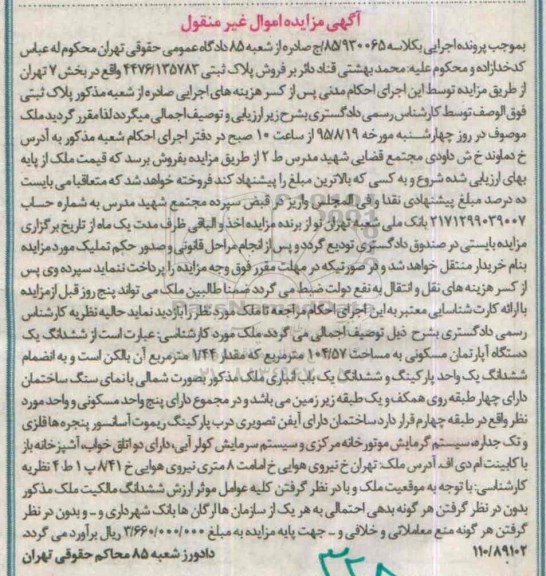 آگهی مزایده اموال غیر منقول
بموجب پرونده اجرایی بکلاسه ۸۵/۹۳۰۰۶۵/ج صادره از شعبه ۸۵ دادگاه عمومی حقوقی تهران محکوم له عباس
کدخدازاده و محکوم علیه: محمد بهشتی قناد دائر بر فروش پلاک ثبتی ۴۴۷۶/۱۳۵۷۸۳ واقع در بخش ۷ تهران
از طریق مزایده توسط این اجرای احکام مدنی پس از کسر هزینه های اجرایی صادره از شعبه مذکور پلاک ثبتی
فوق الوصف توسط کارشناس رسمی دادگستری بشرح زیر ارزیابی و توصیف اجمالی میگردد لذا مقرر گردید ملک
موصوف در روز چهارشنبه مورخه ۹۵/۸/۱۹ از ساعت ۱۰ صبح در دفتر اجرای احکام شعبه مذکور به آدرس
خ دماوند خ ش داودی مجتمع قضایی شهید مدرس ط ۲ از طریق مزایده بفروش برسد که قیمت ملک از پایه
بهای ارزیابی شده شروع و به کسی که بالاترین مبلغ را پیشنهاد کند فروخته خواهد شد که متعاقبا می بایست
ده درصد مبلغ پیشنهادی نقدا و فی المجلس واریز و قبض سپرده مجتمع شهید مدرس به شماره حساب
۲۱۷۱۲۹۹۰۳۹۰۰۷ بانک ملی شعبه تهران نو از برنده مزایده اخذ و الباقی ظرف مدت یک ماه از تاریخ برگزاری
مزایده بایستی در صندوق دادگستری تودیع گردد و پس از انجام مراحل قانونی و صدور حکم تملیک مورد مزایده
بنام خریدار منتقل خواهد شد و در صورتیکه در مهلت مقرر فوق وجه مزایده را پرداخت ننماید سپرده وی پس
از کسر هزینه های نقل و انتقال به نفع دولت ضبط می گردد ضمنا طالبین ملک می تواند پنج روز قبل از مزایده
با ارائه کارت شناسایی معتبر به این اجرای احکام مراجعه تا ملک مورد نظر را بازدید نماید حالیه نظریه کارشناس
رسمی دادگستری بشرح ذیل توصیف اجمالی می گردد. ملک مورد کارشناسی: عبارت است از ششدانگ یک
دستگاه آپارتمان مسکونی به مساحت ۱۰۴/۵۷ مترمربع که مقدار ۱/۴۴ مترمربع آن بالکن است و به انضمام
ششدانگ یک واحد پارکینگ و ششدانگ یک باب انباری ملک مذکور بصورت شمالی با نمای سنگ ساختمان
دارای چهار طبقه روی همکف و یک طبقه زیر زمین می باشد و در مجموع دارای پنج واحد مسکونی و واحد مورد
نظر واقع در طبقه چهارم قرار دارد ساختمان دارای آیفن تصویری درب پارکینگ ریموت آسانسور پنجره ها فلزی
و تک جداره، سیستم گرمایش موتورخانه مرکزی و سیستم سرمایش کولر آبی، دارای دو اتاق خواب، آشپزخانه باز
با کابینت ام دی اف. آدرس ملک: تهران خ نیروی هوایی خ امامت ۸ متری نیروی هوایی خ ۸۴۱ پ ۱ ط ۴ نظریه
کارشناسی: با توجه به موقعیت ملک و با در نظر گرفتن کلیه عوامل موثر ارزش ششدانگ مالکیت ملک مذکور
بدون در نظر گرفتن هر گونه بدهی احتمالی به هر یک از سازمان ها ارگان ها بانک شهرداری و ـ و بدون در نظر
گرفتن هر گونه منع معاملاتی و خلافی و ـ جهت پایه مزایده به مبلغ ۳/۶۶۰/۰۰۰/۰۰۰ ریال برآورد می گردد.
۱۱۰/۸۹۱۰۲ دادورز شعبه ۸۵ محاکم حقوقی تهران